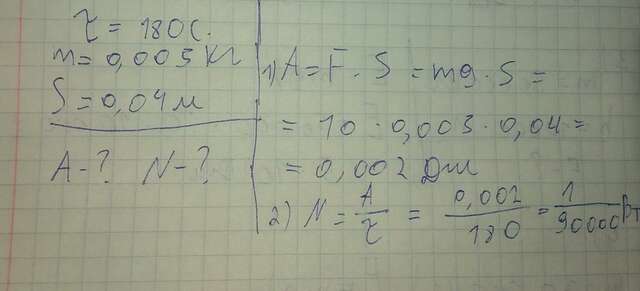 τ = 180 с.
m = 0,005 кг
S = 0,04 м
A - ? N - ?
1) A = F · S = mg · S =
= 10 · 0,005 · 0,04 =
= 0,002 Дж
2) N = A/τ = 0,002/180 = 1/90000 Вт